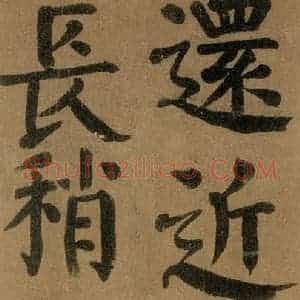 還近
長稍
shufaziliao.com